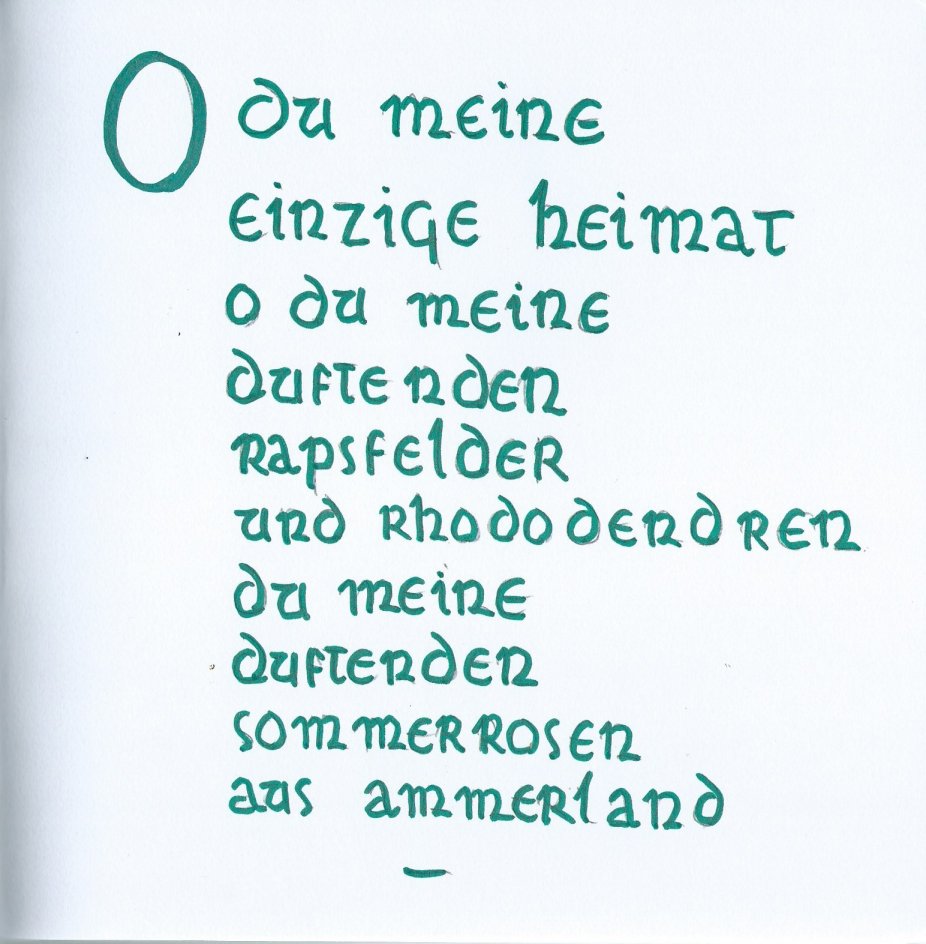 O du meine
einzige heimat
o du meine
duftenden
Rapsfelder
und Rhododendren
du meine
duftenden
sommerrosen
aus ammerland